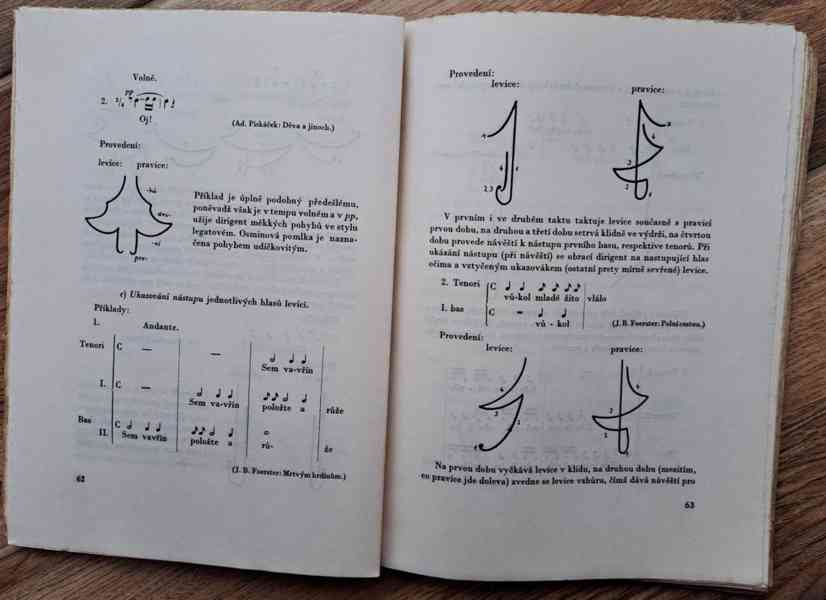 Volně.
pp
2. 2/4
Oj!
(Ad. Piskáček: Děva a jinoch.)
Provedení:
levice: pravice:
-há
dru-
-ní
prv-
Příklad je úplně podobný předešlému,
poněvadž však je v tempu volném a v pp,
užije dirigent měkkých pohybů ve stylu
legatovém. Osminová pomlka je nazna-
čena pohybem udičkovitým.
c) Ukazování nástupu jednotlivých hlasů levicí.
Příklady:
1. Andante.
Tenoři C
Sem va-vřín
I. C
Sem va-vřín položte a růže
Bas
II. C
Sem vavřín položte a rů- že
(J. B. Foerster: Mrtvým hrdinům.)
62
Provedení:
levice: pravice:
4
4 1
2,3
3
4
3
2
1
V prvním i ve druhém taktu taktuje levice současně s pravicí
prvou dobu, na druhou a třetí dobu setrvá klidně ve výdrži, na čtvrtou
dobu provede návěští k nástupu prvního basu, respektive tenorů. Při
ukázání nástupu (při návěští) se obrací dirigent na nastupující hlas
očima a vztyčeným ukazovákem (ostatní prsty mírně sevřené) levice.
2. Tenoři C
vů-kol mladé žito vlálo
I. bas C
vů - kol
(J. B. Foerster: Polní cestou.)
Provedení:
levice: pravice:
4
2
3
4
3
2
1
Na prvou dobu vyčkává levice v klidu, na druhou dobu (mezitím,
co pravice jde doleva) zvedne se levice vzhůru, čímž dává návěští pro
63